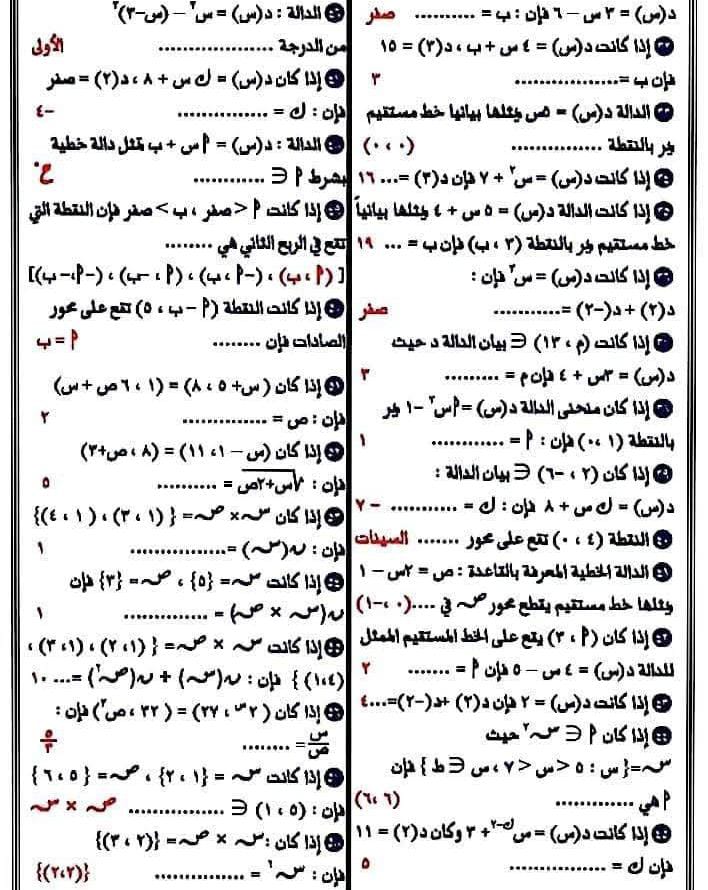 د(س) = ٣ س – ٦ فإن : ب = .......... صفر
إذا كانت د(س) = ٤ س + ب ، د(٣) = ١٥
فإن ب = .................. ٣
الدالة د(س) = ٣س يمثلها بيانيا خط مستقيم
يمر بالنقطة ................ (٠ ، ٠)
إذا كانت د(س) = س٢ + ٧ فإن د(٣) = ... ١٦
إذا كانت الدالة د(س) = ٥ س + ٤ يمثلها بيانياً
خط مستقيم يمر بالنقطة (٣ ، ب) فإن ب = ... ١٩
إذا كانت د(س) = س٣ فإن :
د(٢) + د(-٢) = ............ صفر
إذا كانت (م ، ١٣) ∈ بيان الدالة د حيث
د(س) = ٣س + ٤ فإن م = ......... ٣
إذا كان منحنى الدالة د(س) = أس٢ – ١ يمر
بالنقطة (١ ، ٠) فإن : أ = ............. ١
إذا كان (٢ ، -٦) ∈ بيان الدالة :
د(س) = ك س + ٨ فإن : ك = ............ -٧
النقطة (٤ ، ٠) تقع على محور ....... السينات
الدالة الخطية المعرفة بالقاعدة : ص = ٢س – ١
يمثلها خط مستقيم يقطع محور ص في ....(٠ ، -١)
إذا كان (أ ، ٣) يقع على الخط المستقيم الممثل
للدالة د(س) = ٤ س – ٥ فإن أ = ........ ٢
إذا كانت د(س) = ٢ فإن د(٢) + د(-٢) = ...٤
إذا كان أ ∈ س٢ حيث
س = {س : ٥ < س < ٧ ، س ∈ ط} فإن
أ هي .............. (٦ ، ٦)
إذا كانت د(س) = س ك-٢ + ٣ وكان د(٢) = ١١
فإن ك = .................. ٥
الدالة : د(س) = س٢ – (س-٣)٢
من الدرجة .................... الأولى
إذا كان د(س) = ك س + ٨ ، د(٢) = صفر
فإن : ك = ................ -٤
الدالة : د(س) = أ س + ب تمثل دالة خطية
بشرط أ ∈ ............ ح*
إذا كانت أ < صفر ، ب > صفر فإن النقطة التي
تقع في الربع الثاني هي ........
[ (أ ، ب) ، (-أ ، ب) ، (أ ، -ب) ، (-أ ، -ب)]
إذا كانت النقطة (أ – ب ، ٥) تقع على محور
الصادات فإن ........ أ = ب
إذا كان (س + ٥ ، ٨) = (١ ، ٦ ص + س)
فإن : ص = ............... ٢
إذا كان (س – ١ ، ١١) = (٨ ، ص+٣)
فإن : √س+٢ص = .......... ٥
إذا كان س × ص = {(١ ، ٣) ، (١ ، ٤)}
فإن : ن(س) = ................. ١
إذا كانت س = {٥} ، ص = {٣} فإن
ن(س × ص) = ............... ١
إذا كانت س × ص = {(١ ، ٢) ، (١ ، ٣) ،
(١،٤)} فإن : ن(س) + ن(ص٢) = ... ١٠
إذا كان (٢س ، ٢٧) = (٣٢ ، ص٣) فإن :
س/ص = ........ ٥/٣
إذا كانت س = {١ ، ٢} ، ص = {٥ ، ٦}
فإن : (٥ ، ١) ∈ ................ ص × س
إذا كان : س × ص = {(٢ ، ٣)}
فإن : س٢ = ............... {(٢،٢)}